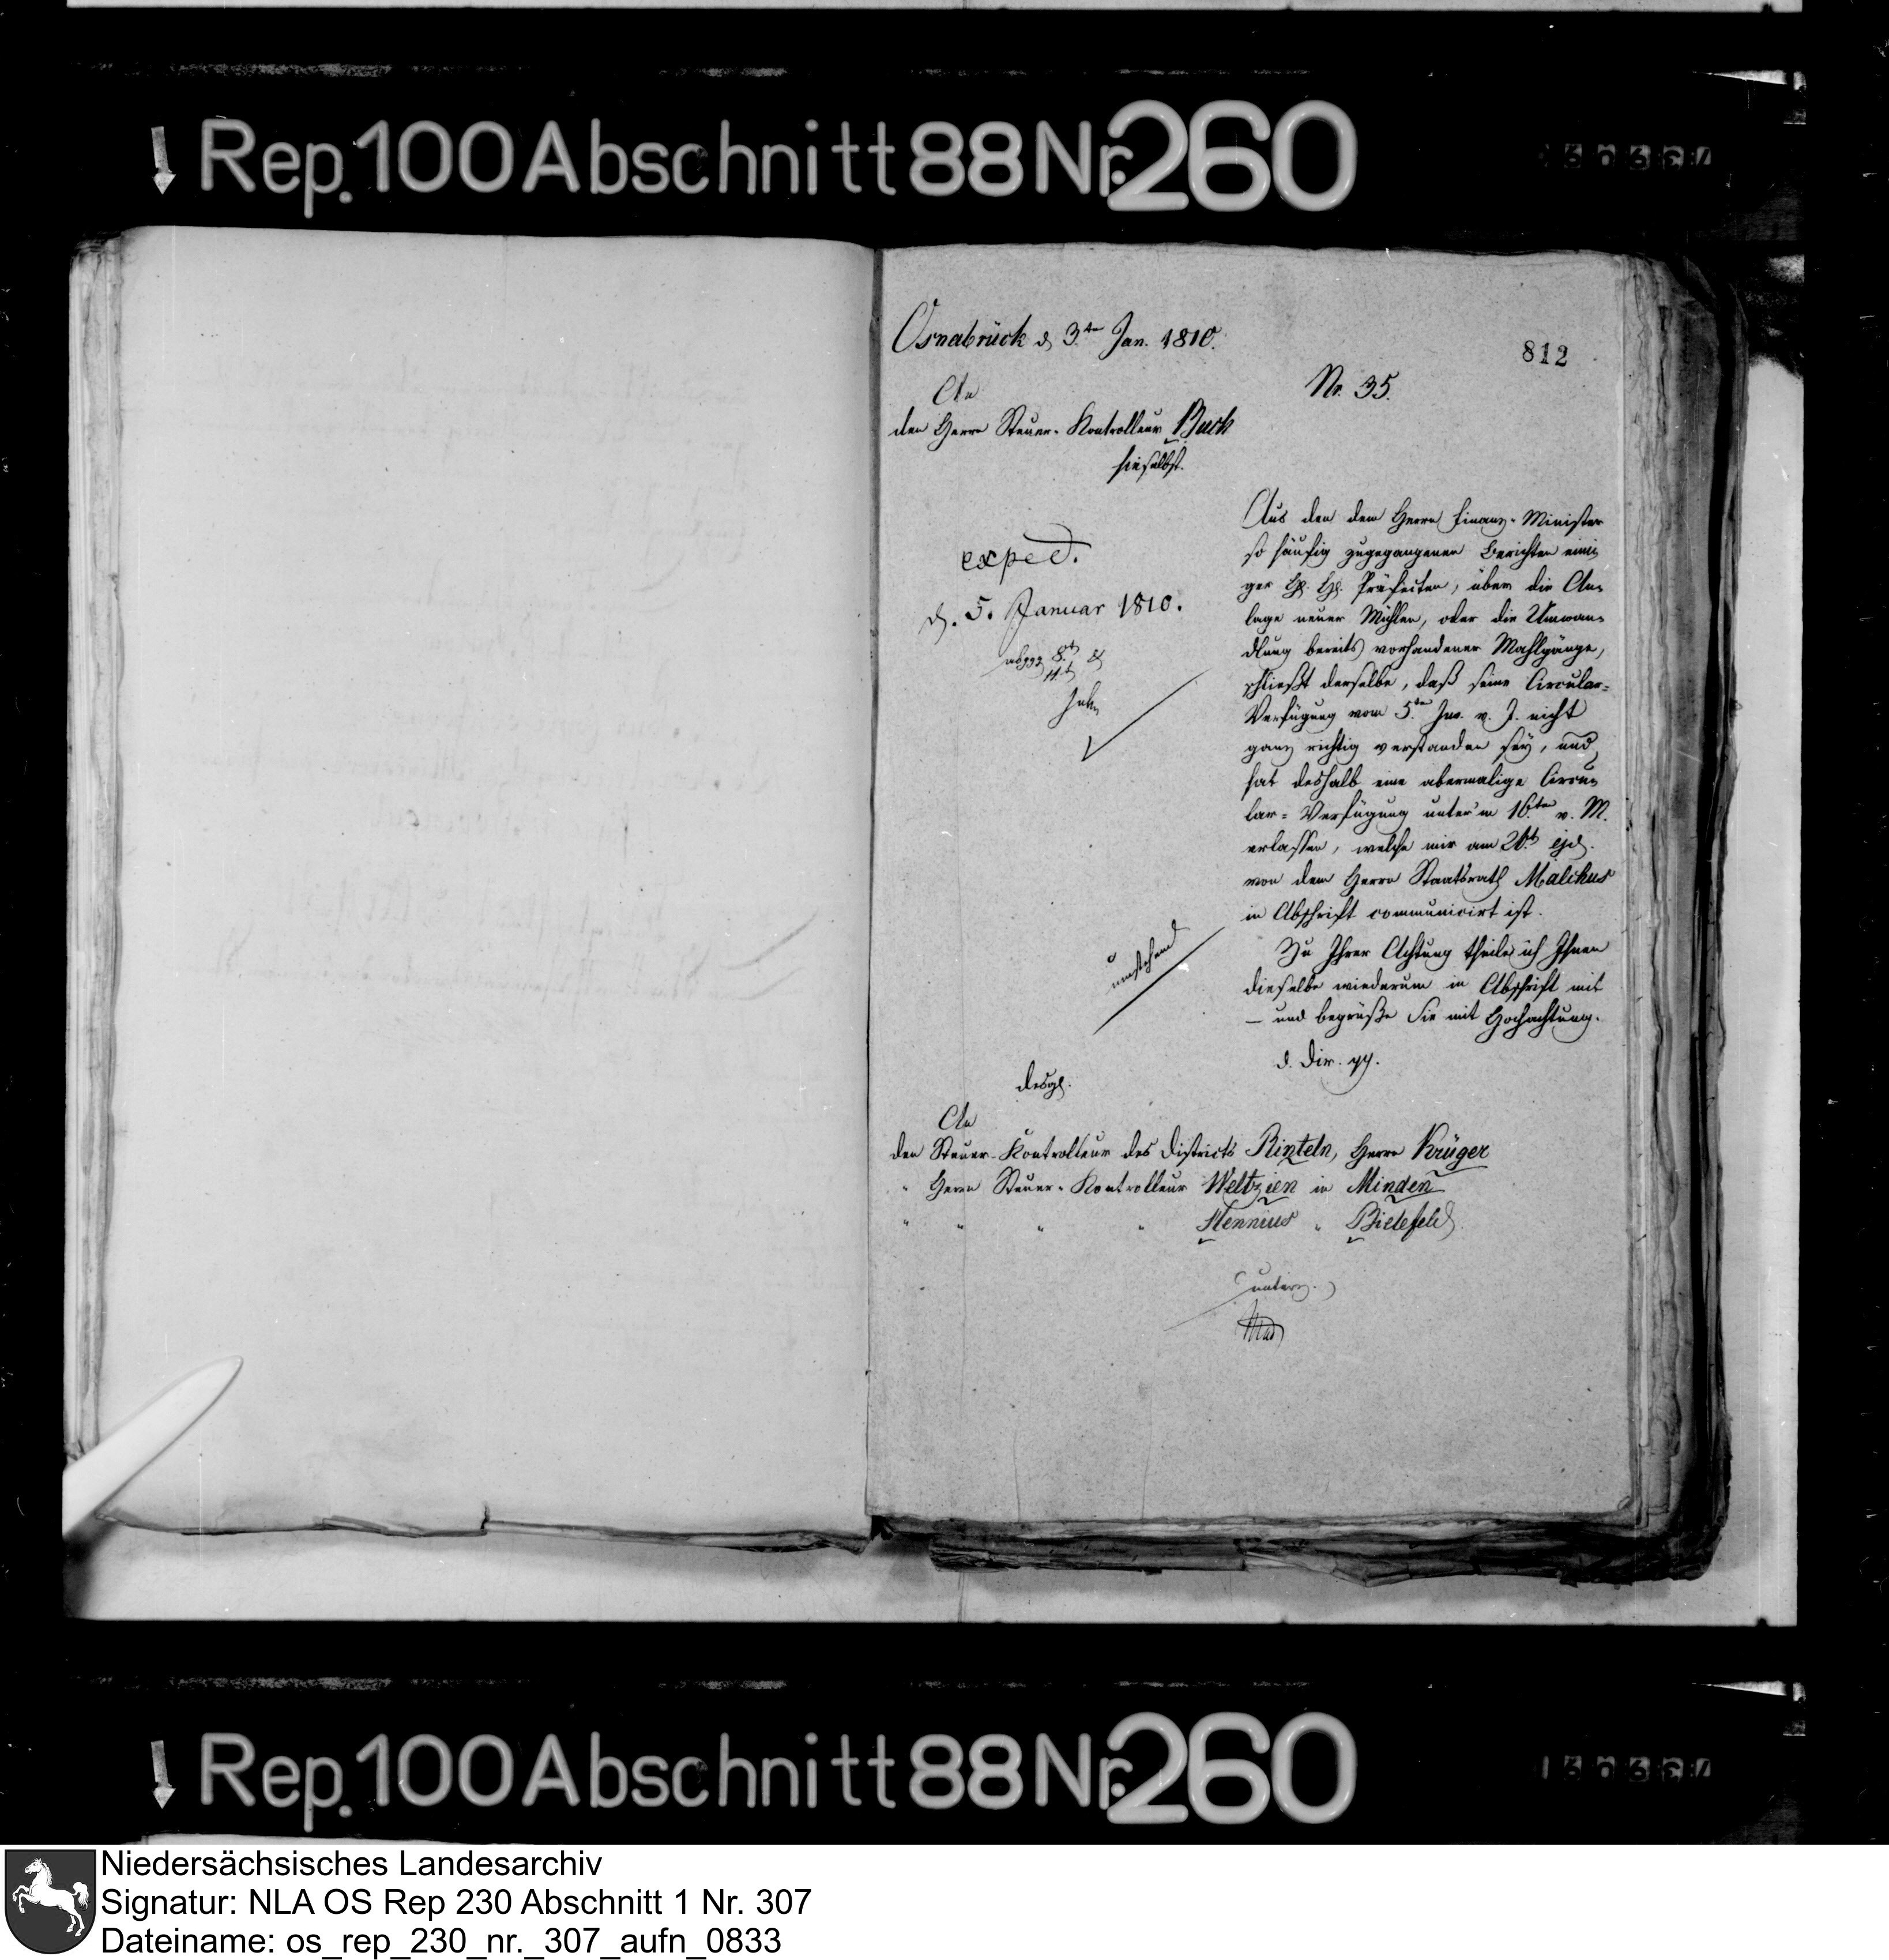 Rep. 100 Abschnitt 88 Nr. 260
Osnabrück d. 3.ten Jan. 1810.
812
Nr. 35.
An
den Herrn Steuer-Kontrolleur Buch
hieselbst.
Aus den dem Herrn Finanz-Minister
so häufig zugegangenen Berichten eini
ger H. H. Präfecten, über die An-
lage neuer Mühlen, oder die Umwan-
dlung bereits vorhandener Mahlgänge,
schließt derselbe, daß seine Circular-
Verfügung vom 5.ten v. J. nicht
ganz richtig verstanden sey, und
hat deshalb eine abermalige Circu-
lar-Verfügung unter'm 16.ten v. M.
erlassen, welche mir am ejd.
von dem Herrn Staatsrath Malchus
in Abschrift communicirt ist.
Zu Ihrer Achtung theile ich Ihnen
dieselbe wiederum in Abschrift mit
– und begrüße Sie mit Hochachtung.
d. Dir. pp.
exped.
d. 5. Januar 1810.
abggg 8t
11t
umstehend
desgl.
An
den Steuer-Kontrolleur des Districts Rinteln, Herrn Krüger
" Herrn Steuer-Kontrolleur Weltzien in Minden
" " " " Hennius " Bielefeld
unterz.
Rep. 100 Abschnitt 88 Nr. 260
Niedersächsisches Landesarchiv
Signatur: NLA OS Rep 230 Abschnitt 1 Nr. 307
Dateiname: os_rep_230_nr._307_aufn_0833